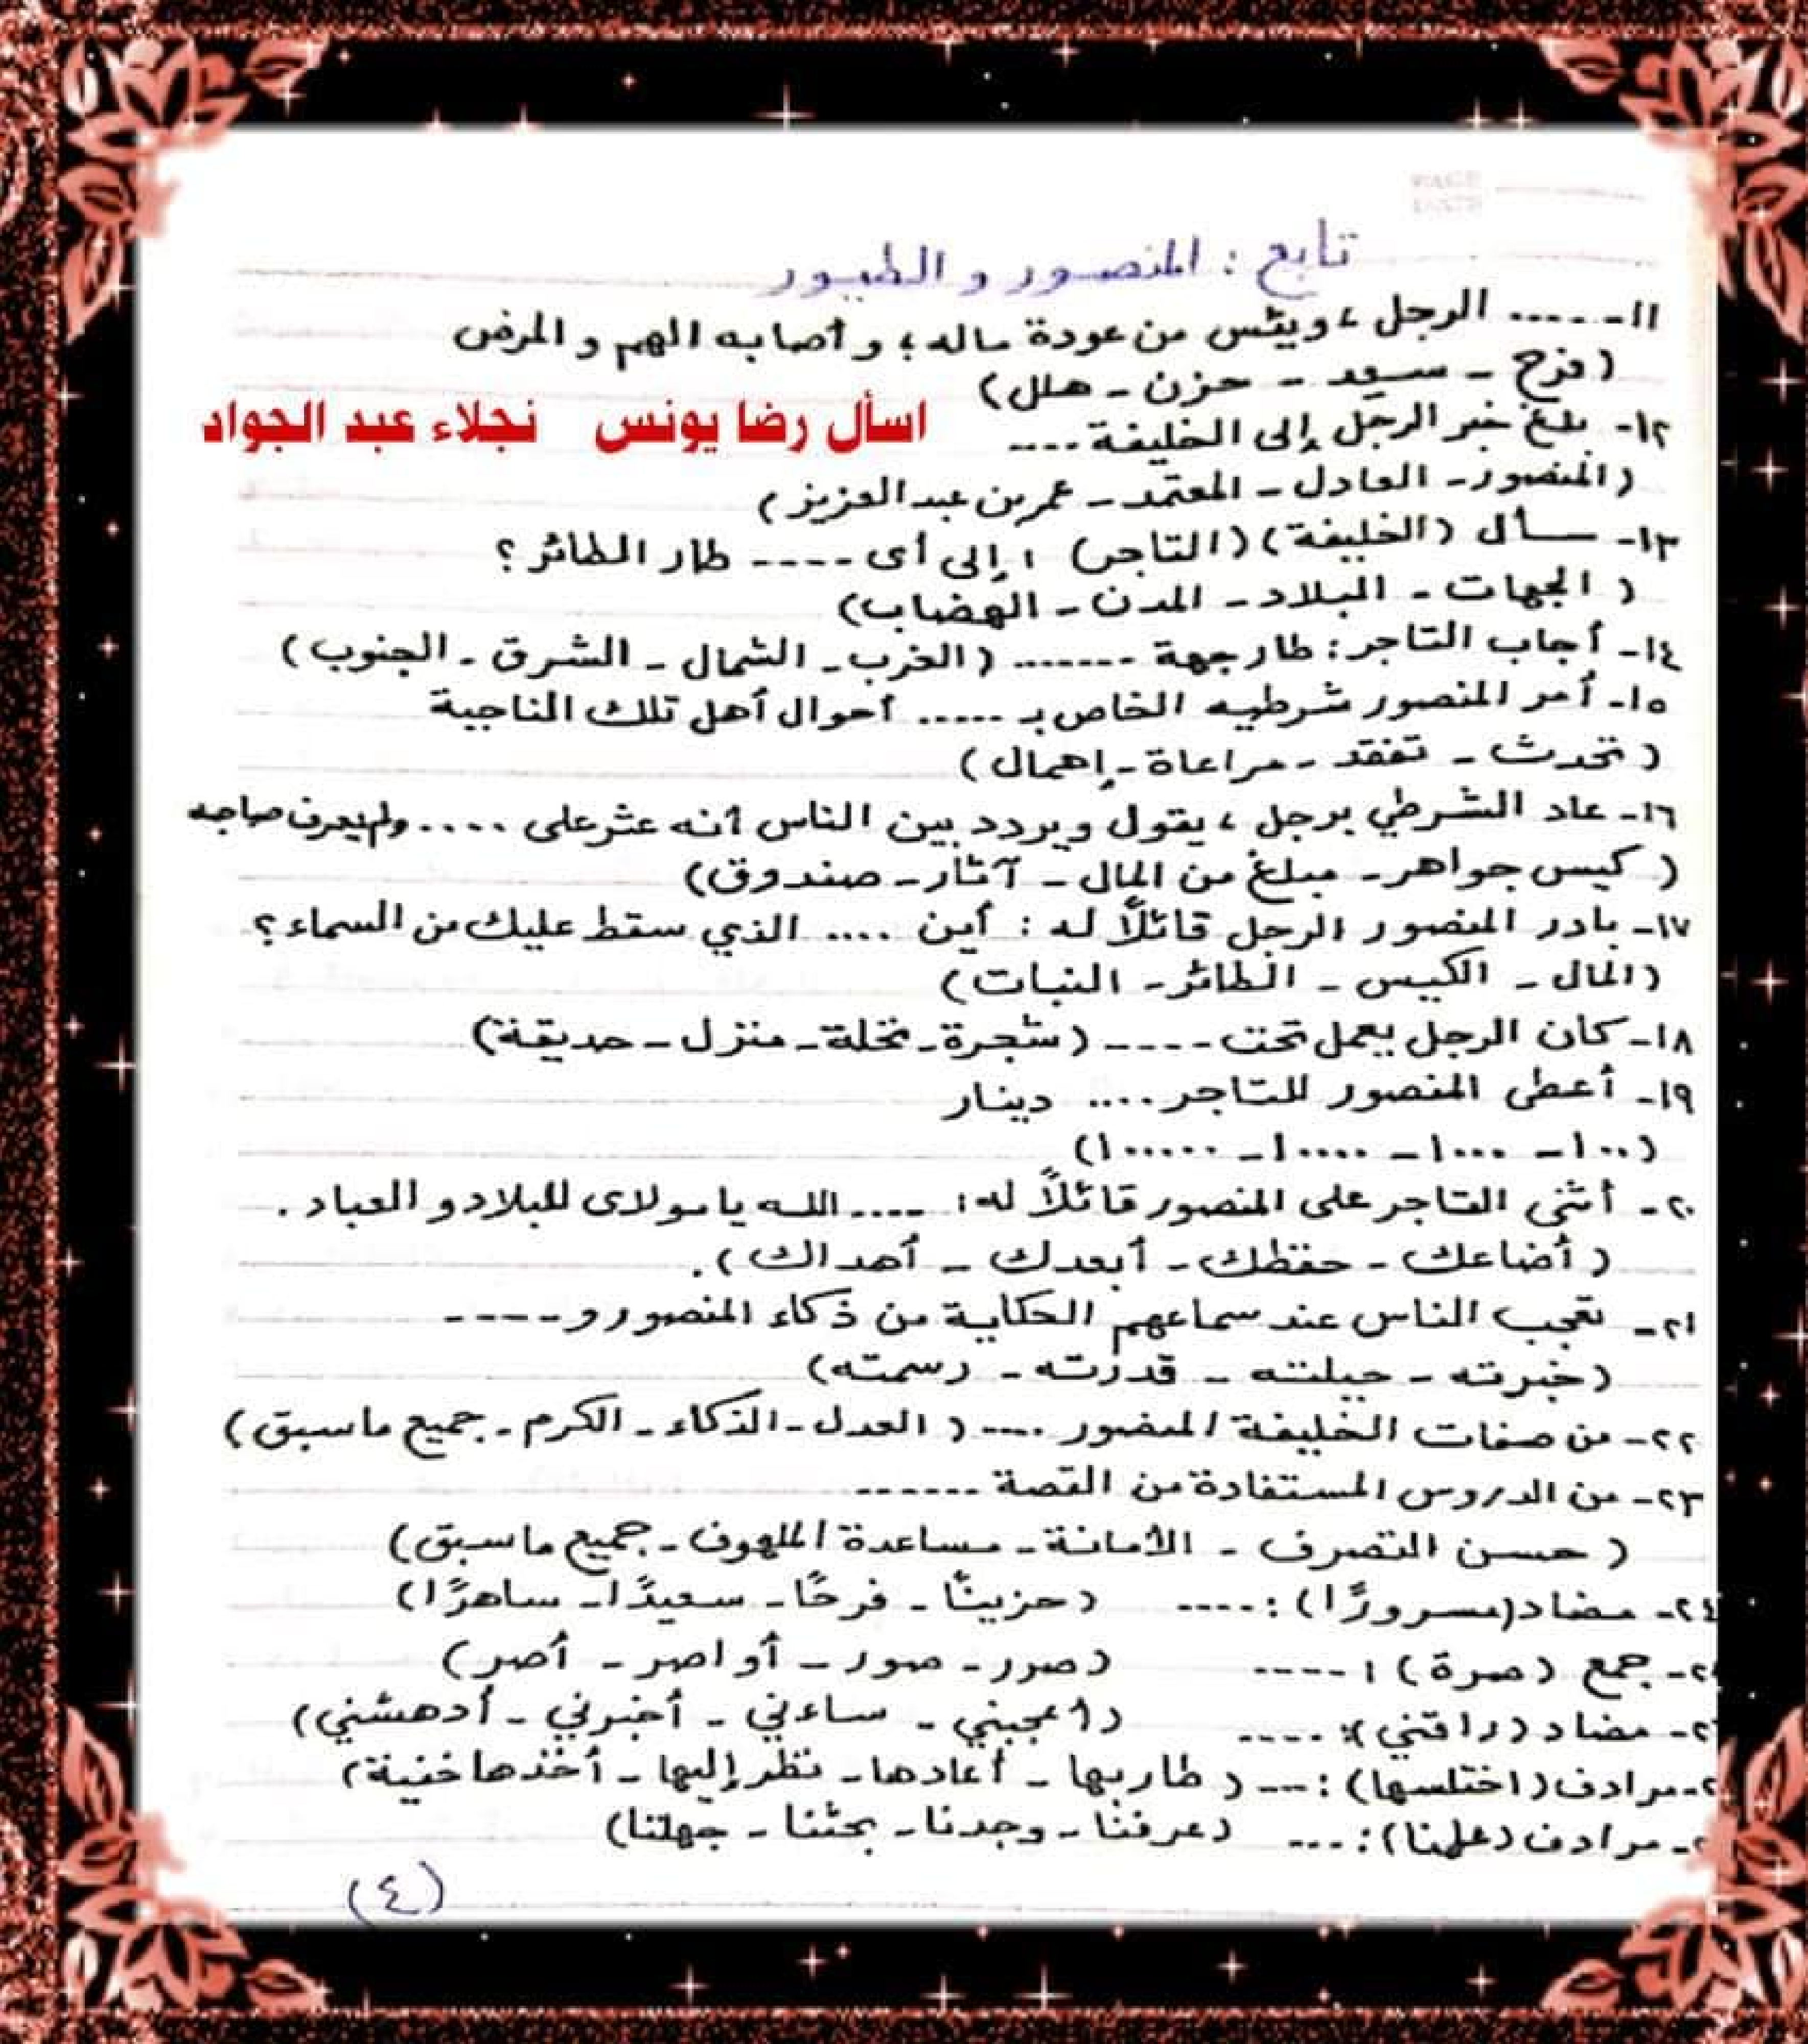 تابع : المنصور والطيور
١١- ...... الرجل ، ويئس من عودة ماله ؛ وأصابه الهم والمرض
(فرح - سعد - حزن - هلل)
اسأل رضا يونس نجلاء عبد الجواد
١٢- بلغ خبر الرجل إلى الخليفة ....
(المنصور - العادل - المعتمد - عمر بن عبد العزيز)
١٣- سأل (الخليفة) (التاجر) : إلى أى ---- طار الطائر ؟
(الجهات - البلاد - المدن - الهضاب)
١٤- أجاب التاجر : طار جهة ------- (الغرب - الشمال - الشرق - الجنوب)
١٥- أمر المنصور شرطيه الخاص بـ ..... أحوال أهل تلك الناحية
(تحدث - تفقد - مراعاة - إهمال)
١٦- عاد الشرطي برجل ، يقول ويردد بين الناس أنه عثر على .... ولم يعرف صاحبه
(كيس جواهر - مبلغ من المال - آثار - صندوق)
١٧- بادر المنصور الرجل قائلًا له : أين .... الذي سقط عليك من السماء ؟
(المال - الكيس - الطائر - النبات)
١٨- كان الرجل يعمل تحت ---- (شجرة - نخلة - منزل - حديقة)
١٩- أعطى المنصور للتاجر .... دينار
(١٠٠ - ١٠٠٠ - ١٠٠٠٠ - ١٠٠٠٠٠)
٢٠- أثنى التاجر على المنصور قائلًا له : .... الله يا مولاى للبلاد و العباد .
(أضاعك - حفظك - أبعدك - أهداك) .
٢١- تعجب الناس عند سماعهم الحكاية من ذكاء المنصور و----
(خبرته - حيلته - قدرته - رسمته)
٢٢- من صفات الخليفة المنصور .... (العدل - الذكاء - الكرم - جميع ما سبق)
٢٣- من الدروس المستفادة من القصة -------
(حسن التصرف - الأمانة - مساعدة الملهوف - جميع ما سبق)
٢٤- مضاد (مسرورًا) : ---- (حزينًا - فرحًا - سعيدًا - ساهرًا)
جمع (صرة) : ---- (صرر - صور - أواصر - أصر)
مضاد (راقتني) : ---- (أعجبني - ساءني - أخبرني - أدهشني)
مرادف (اختلسها) : --- (طار بها - أعادها - نظر إليها - أخذها خفية)
مرادف (علمنا) : --- (عرفنا - وجدنا - بحثنا - جهلنا)
(٤)